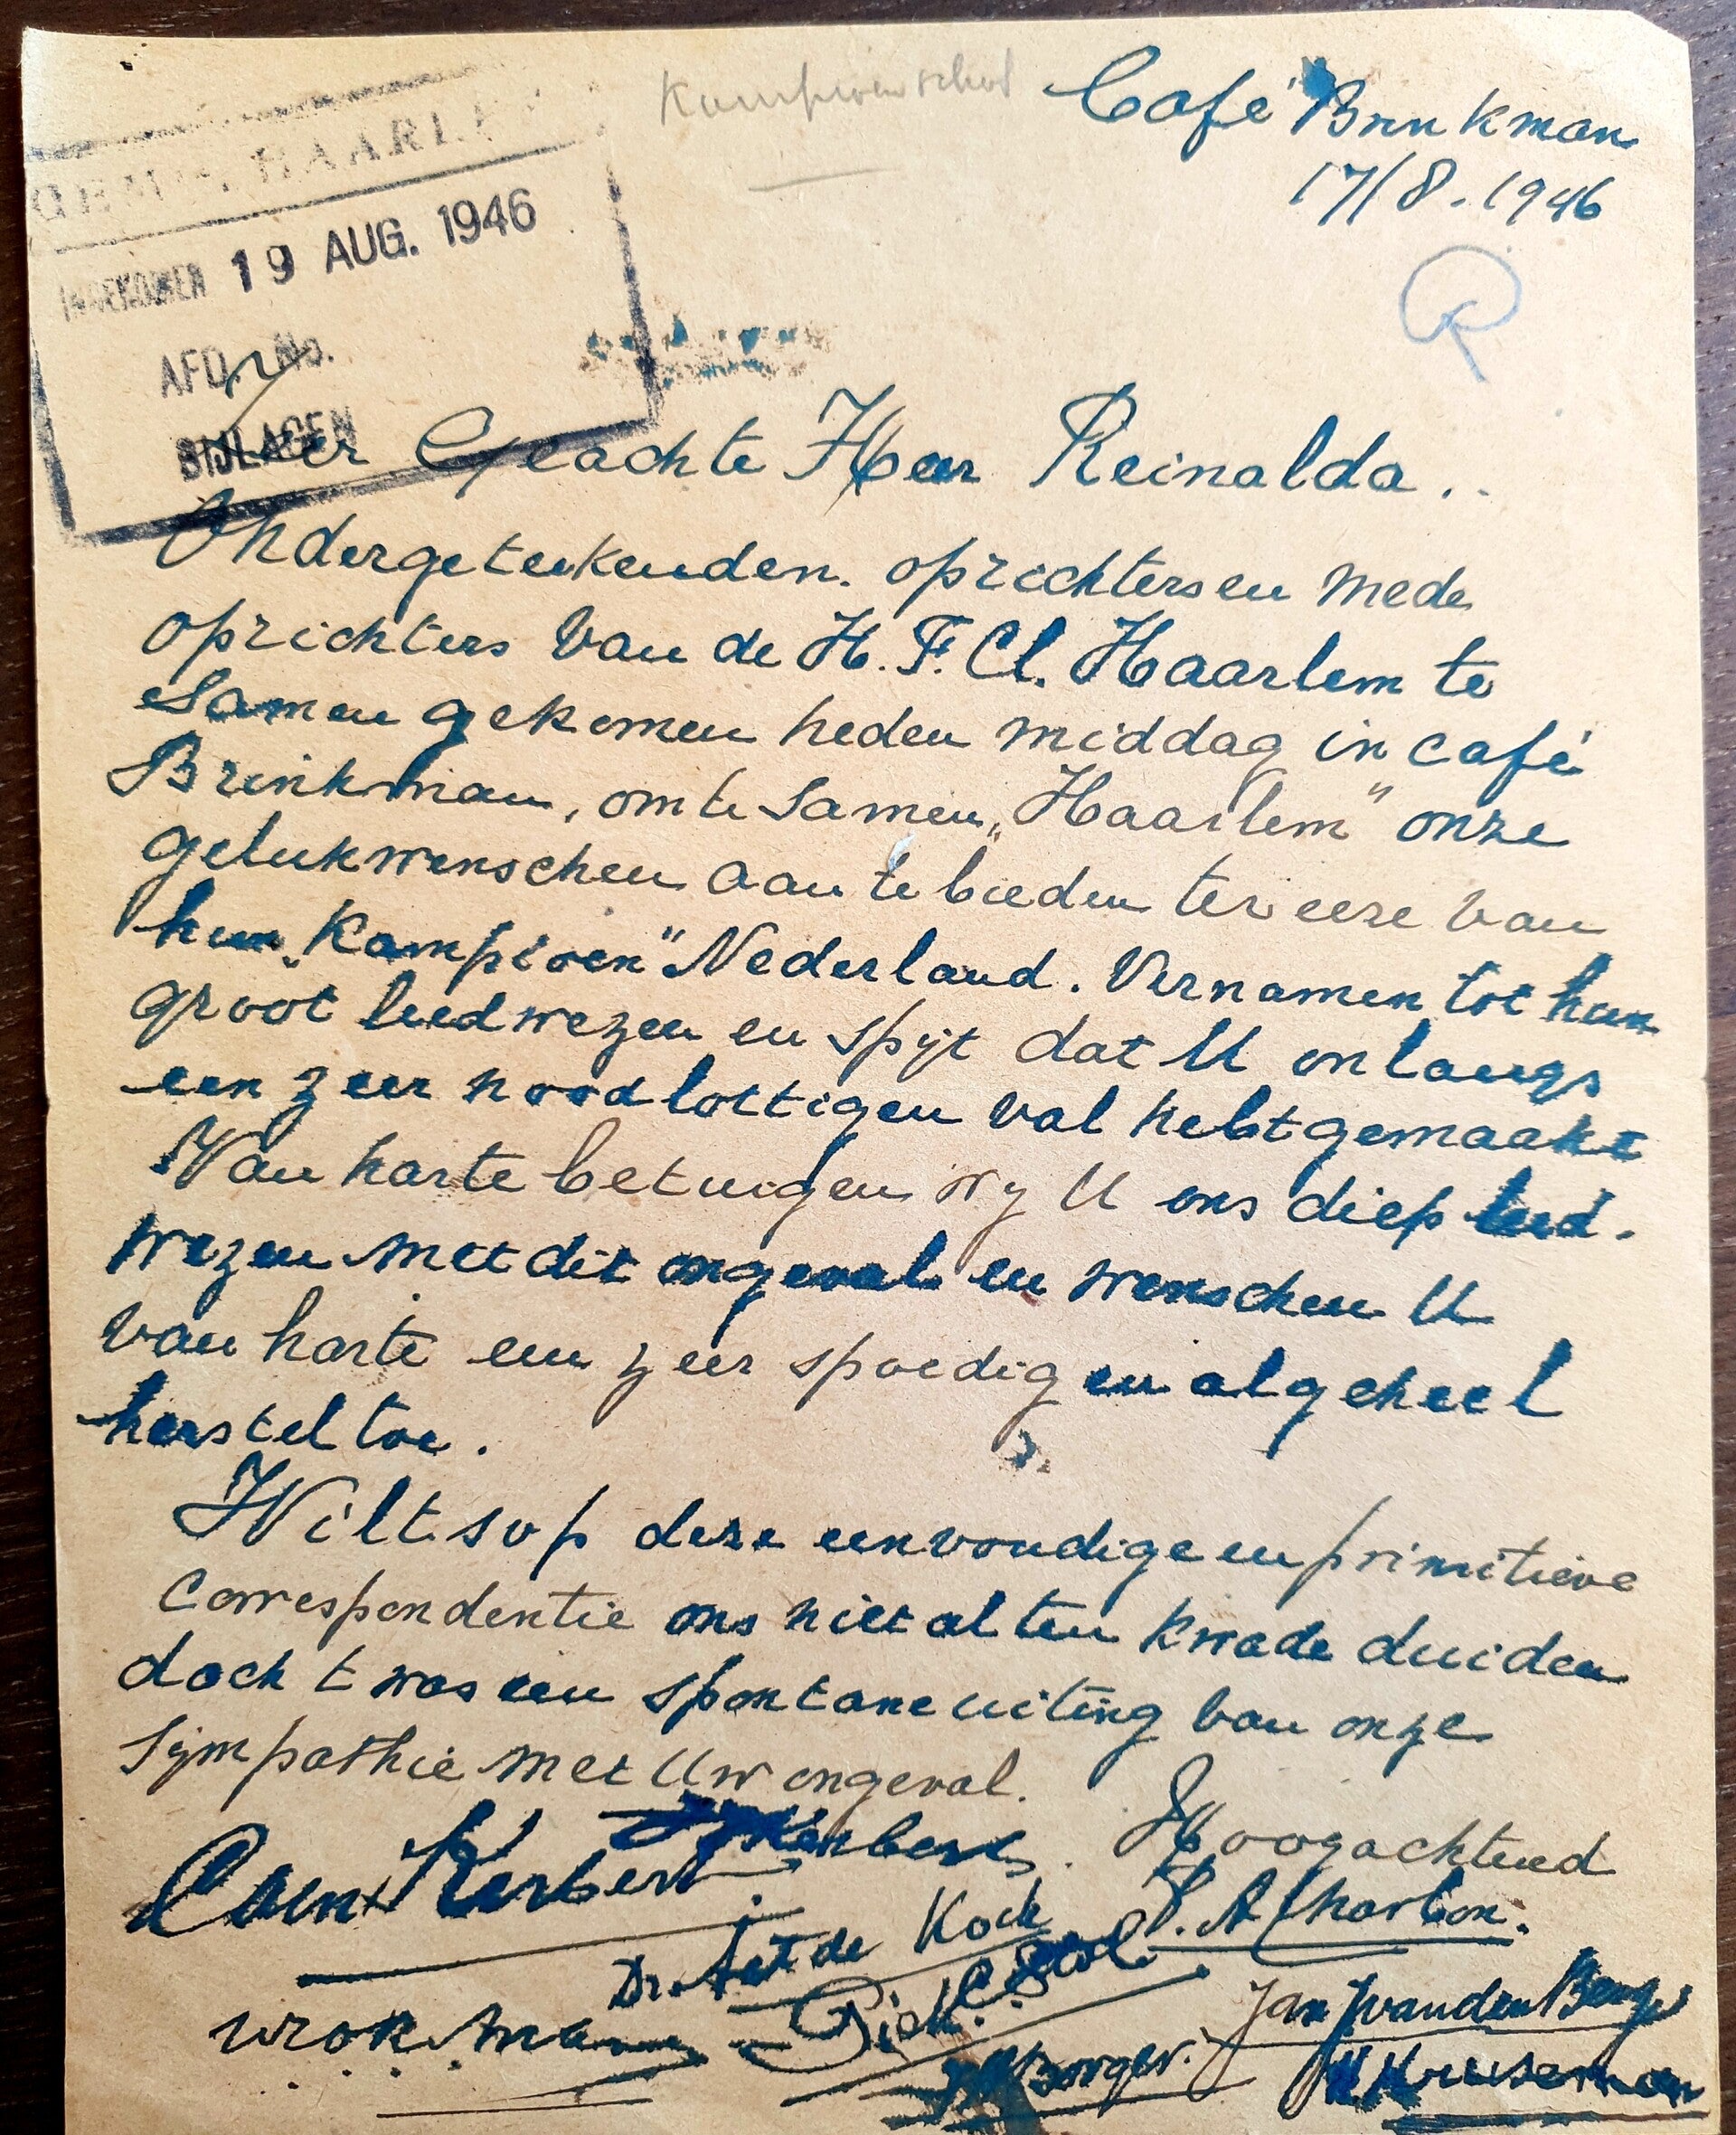 Kampioenschap
Café Brinkman
17/8.1946
GEM. HAARLEM
INGEKOMEN 19 AUG. 1946
AFD. No.
BIJLAGEN
R
Zeer Geachte Heer Reinalda.
Ondergeteekenden. oprichters en mede
oprichters van de H. F. Cl. Haarlem te
samen gekomen heden middag in café
Brinkman, om te samen „Haarlem" onze
gelukwenschen aan te bieden ter eere van
hun „Kampioen" Nederland. Vernamen tot hun
groot leedwezen en spijt dat U onlangs
een zeer noodlottigen val hebt gemaakt
Van harte betuigen wy U ons diep leed.
wezen met dit ongeval en wenschen U
van harte een zeer spoedig en algeheel
herstel toe.
Wilt s op deze eenvoudige en primitieve
Correspondentie ons niet al ten kwade duiden
doch t was een spontane uiting van onze
sympathie met Uw ongeval.
Hoogachtend
Coen Kerbert
Kerbert
P. A. Charbon.
Dr. Aet de Koch
Dick.
Jan J van den Berg
wrok man
H Kruseman